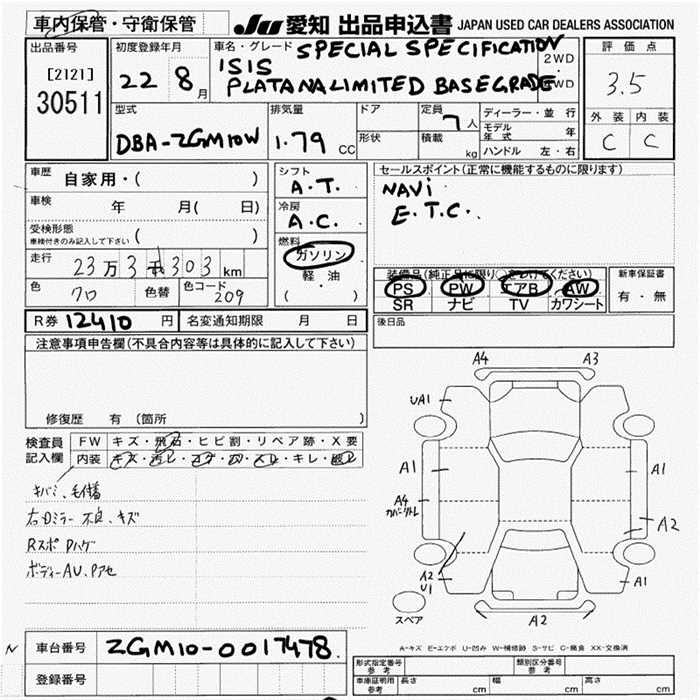 車内保管・守衛保管
JU 愛知 出品申込書 JAPAN USED CAR DEALERS ASSOCIATION
出品番号
[2121]
30511
初度登録年月
22 8月
車名・グレード SPECIAL SPECIFICATION
ISIS
PLATANA LIMITED BASE GRADE
2WD
4WD
評価点
3.5
外装 内装
C C
型式
DBA-ZGM10W
排気量
1.79 CC
ドア
形状
定員
7人
積載
kg
ディーラー・並行
モデル年式 年
ハンドル 左・右
車歴
自家用・( )
車検 年 月( 日)
受検形態
車検付きのみ記入して下さい ( )
走行
23万3千303km
色
クロ
色替
色コード
209
シフト
A.T.
冷房
A.C.
燃料
ガソリン
軽・油
( )
セールスポイント(正常に機能するものに限ります)
NAVi
E.T.C.
装備品(純正品に限り○をつけてください)
PS PW エアB AW
SR ナビ TV カワシート
新車保証書
有・無
R券 12410 円
名変通知期限 月 日
後日品
注意事項申告欄(不具合内容等は具体的に記入して下さい)
修復歴 有 (箇所 )
検査員記入欄
FW キズ・飛石・ヒビ割・リペア跡・X要
内装 キズ・汚レ・コゲ・穴・スレ・キレ・
キバミ、毛付着
右Dミラー 不良、キズ
Rスポ Pハゲ
ボディーAU、Pアセ
A4 A3
UA1 A1
A1 A1
A4 A2
A2 U1 A1
スペア A2
A-キズ E-エクボ U-凹み W-補修跡 S-サビ C-腐食 XX-交換済
N
車台番号 ZGM10-0017478
登録番号
形式指定番号 参考
類別区分番号 参考
車庫証明用 参考 長さ cm 幅 cm 高さ cm